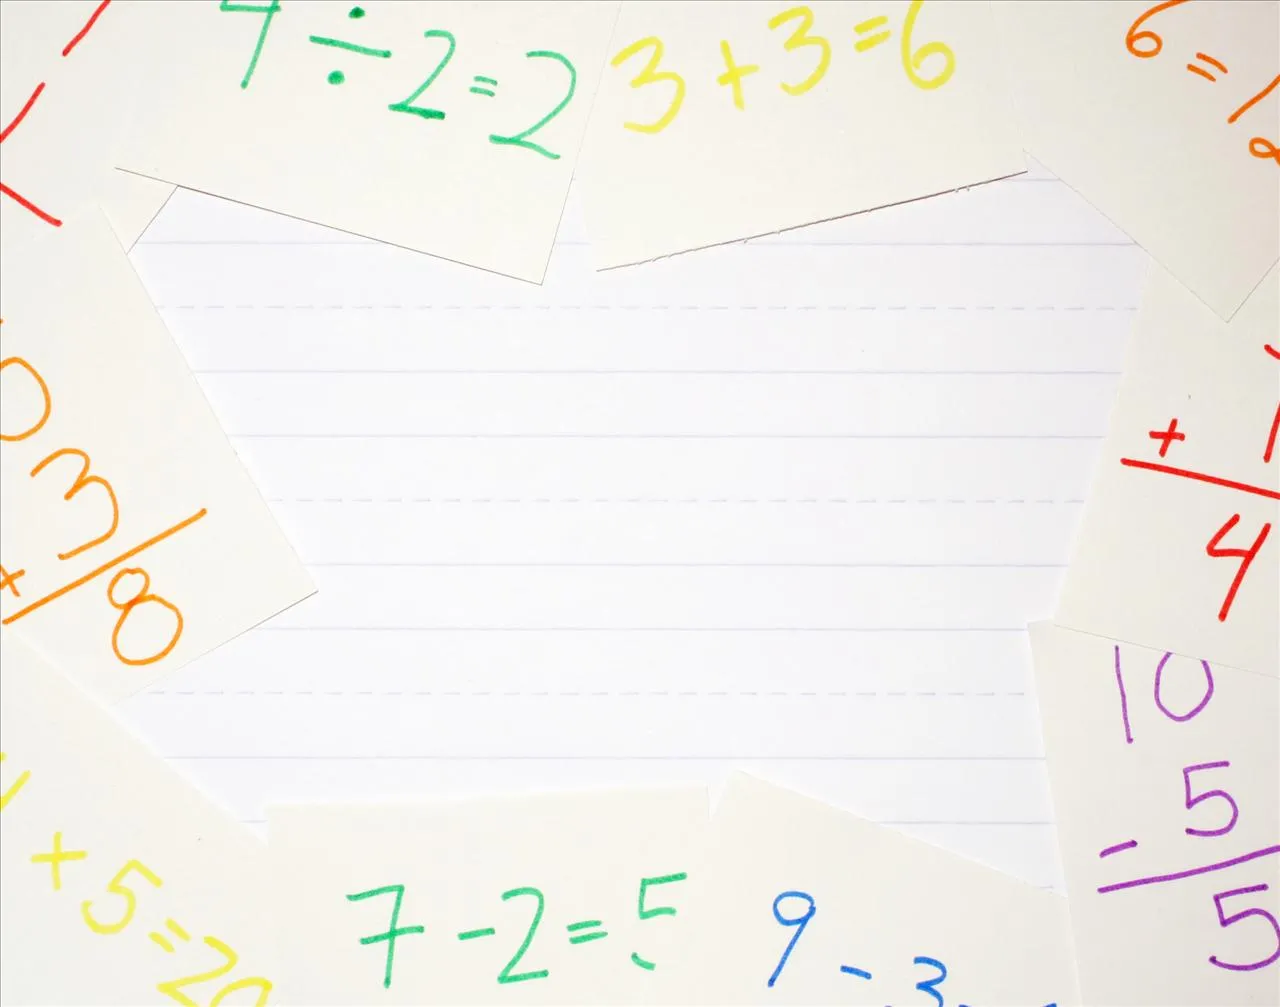 4 ÷ 2 = 2
3 + 3 = 6
6 = 12
3
8
+ 1
4
10
- 5
5
+ 5 = 20
7 - 2 = 5
9 - 3